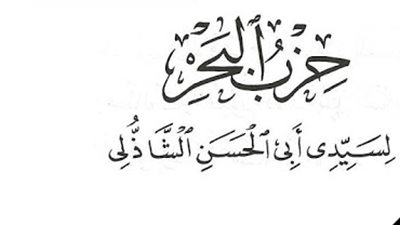 حِزْبُ الْبَحْرِ
لِسَيِّدِى أَبِى الْحَسَنِ الشَّاذُلِى